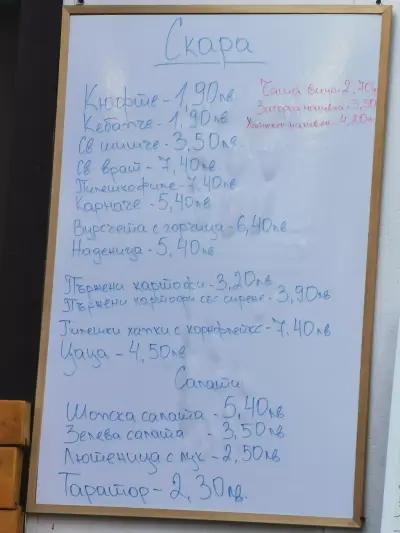 Скара
Кюфте - 1,90лв.
Кебапче - 1,90лв
Св шишче - 3,50лв.
Св врат - 7,40лв
Пилешко филе - 7,40лв
Карначе - 5,40лв
Вурсчета с горчица - 6,40лв
Наденица - 5,40лв
Чаша вино - 2,70
Загорка наливна - 3,50
наливен - 4,20лв
Пържени картофи - 3,20лв
Пържени картофи със сирене - 3,90лв
Пилешки хапки с корнфлейкс - 7,40лв
Цаца - 4,50лв
Салати
Шопска салата - 5,40лв
Зелева салата - 3,50лв
Лютеница с лук - 2,50лв
Таратор - 2,30лв.